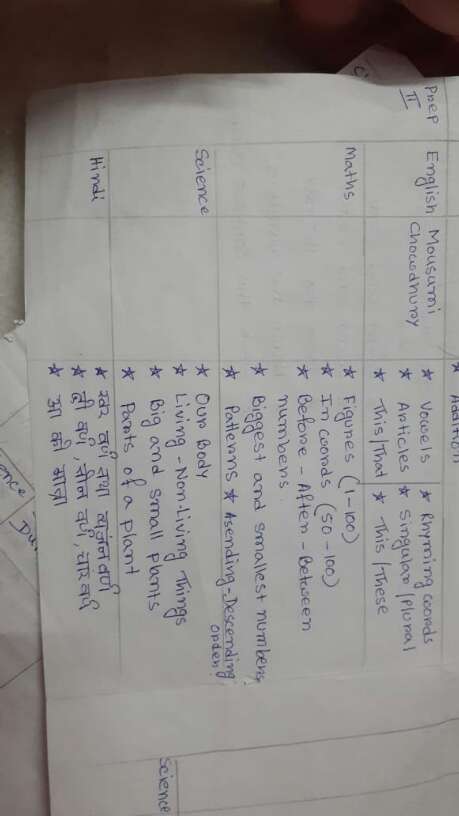 * Addition
Prep II
English
Mousumi Chowdhury
* Vowels * Rhyming words
* Articles * Singular/Plural
* This/That * This/These
Maths
* Figures (1-100)
* In words (50-100)
* Before - After - Between
numbers.
* Biggest and smallest numbers
* Patterns * Asending-Descending
order.
Science
* Our Body
* Living - Non-Living Things
* Big and small Plants
* Parts of a plant
Hindi
* स्वर वर्ण तथा व्यंजन वर्ण
* दो वर्ण, तीन वर्ण, चार वर्ण
* आ की मात्रा
Science